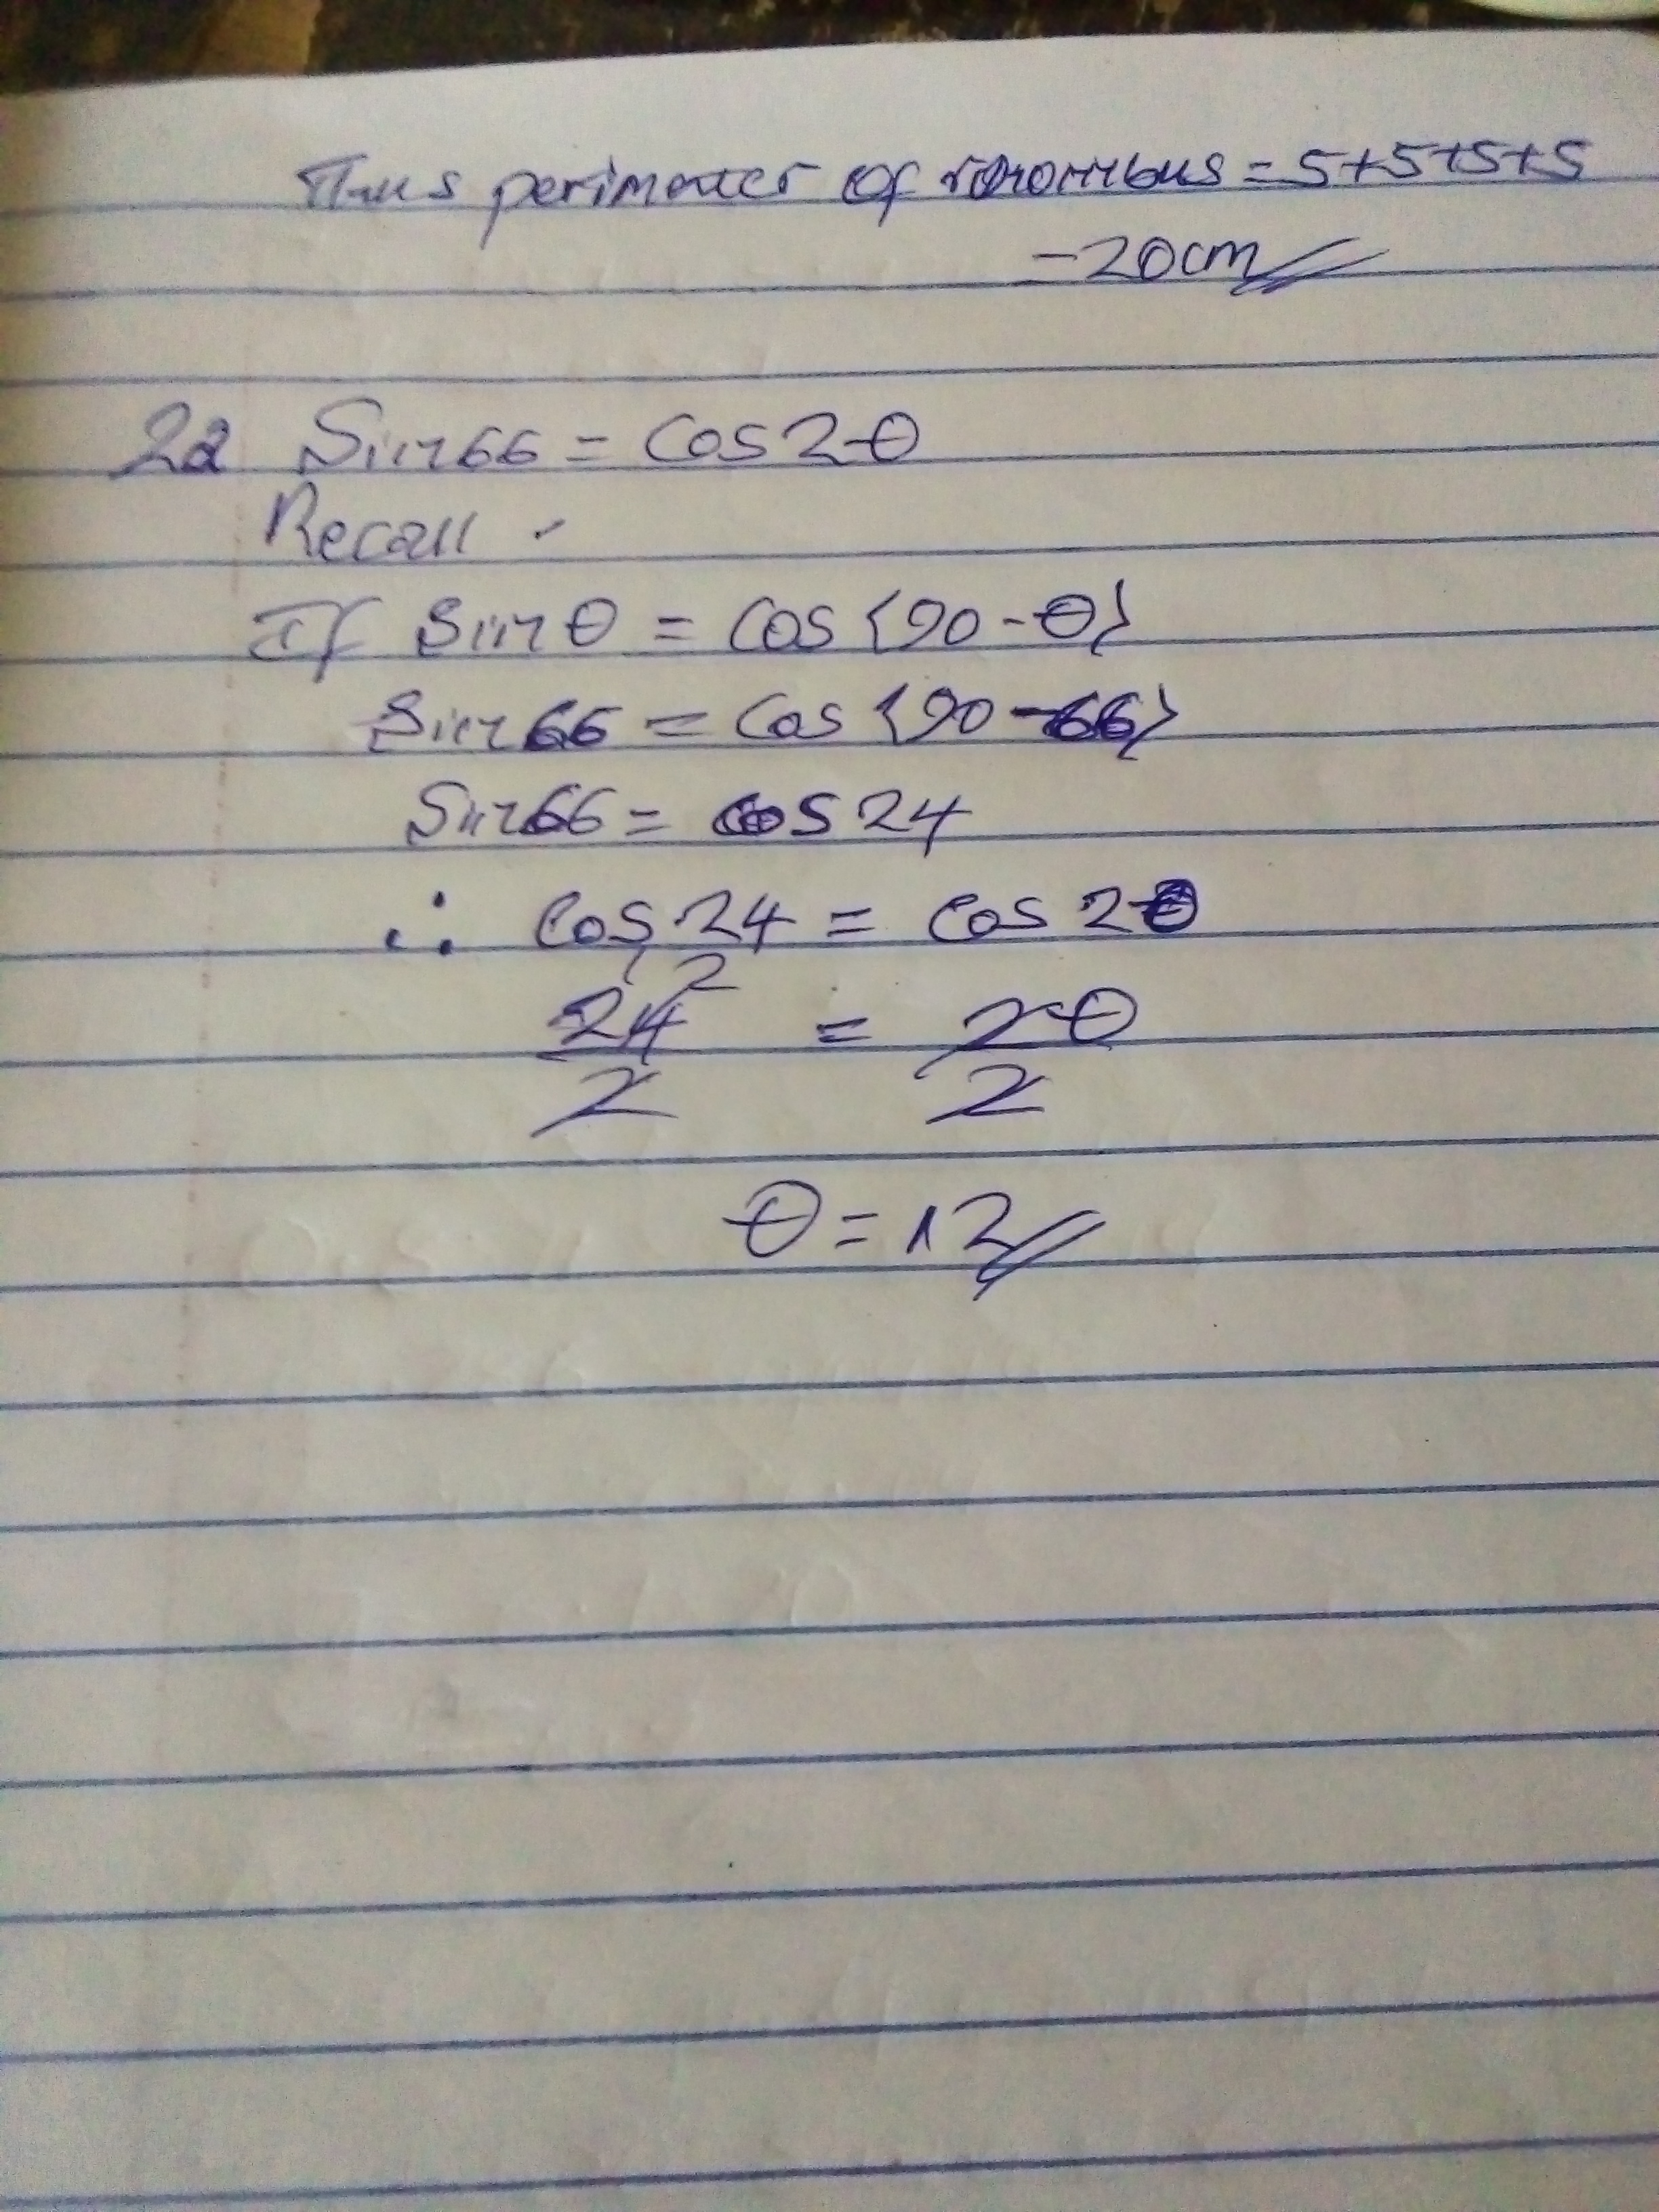 Thus perimeter of rhombus = 5+5+5+5
= 20cm
22 Sin66 = Cos2θ
Recall -
If Sinθ = Cos{90-θ}
Sin66 = Cos{90-66}
Sin66 = Cos24
∴ Cos24 = Cos2θ
1 2
24 = 2θ
2 2
θ = 12